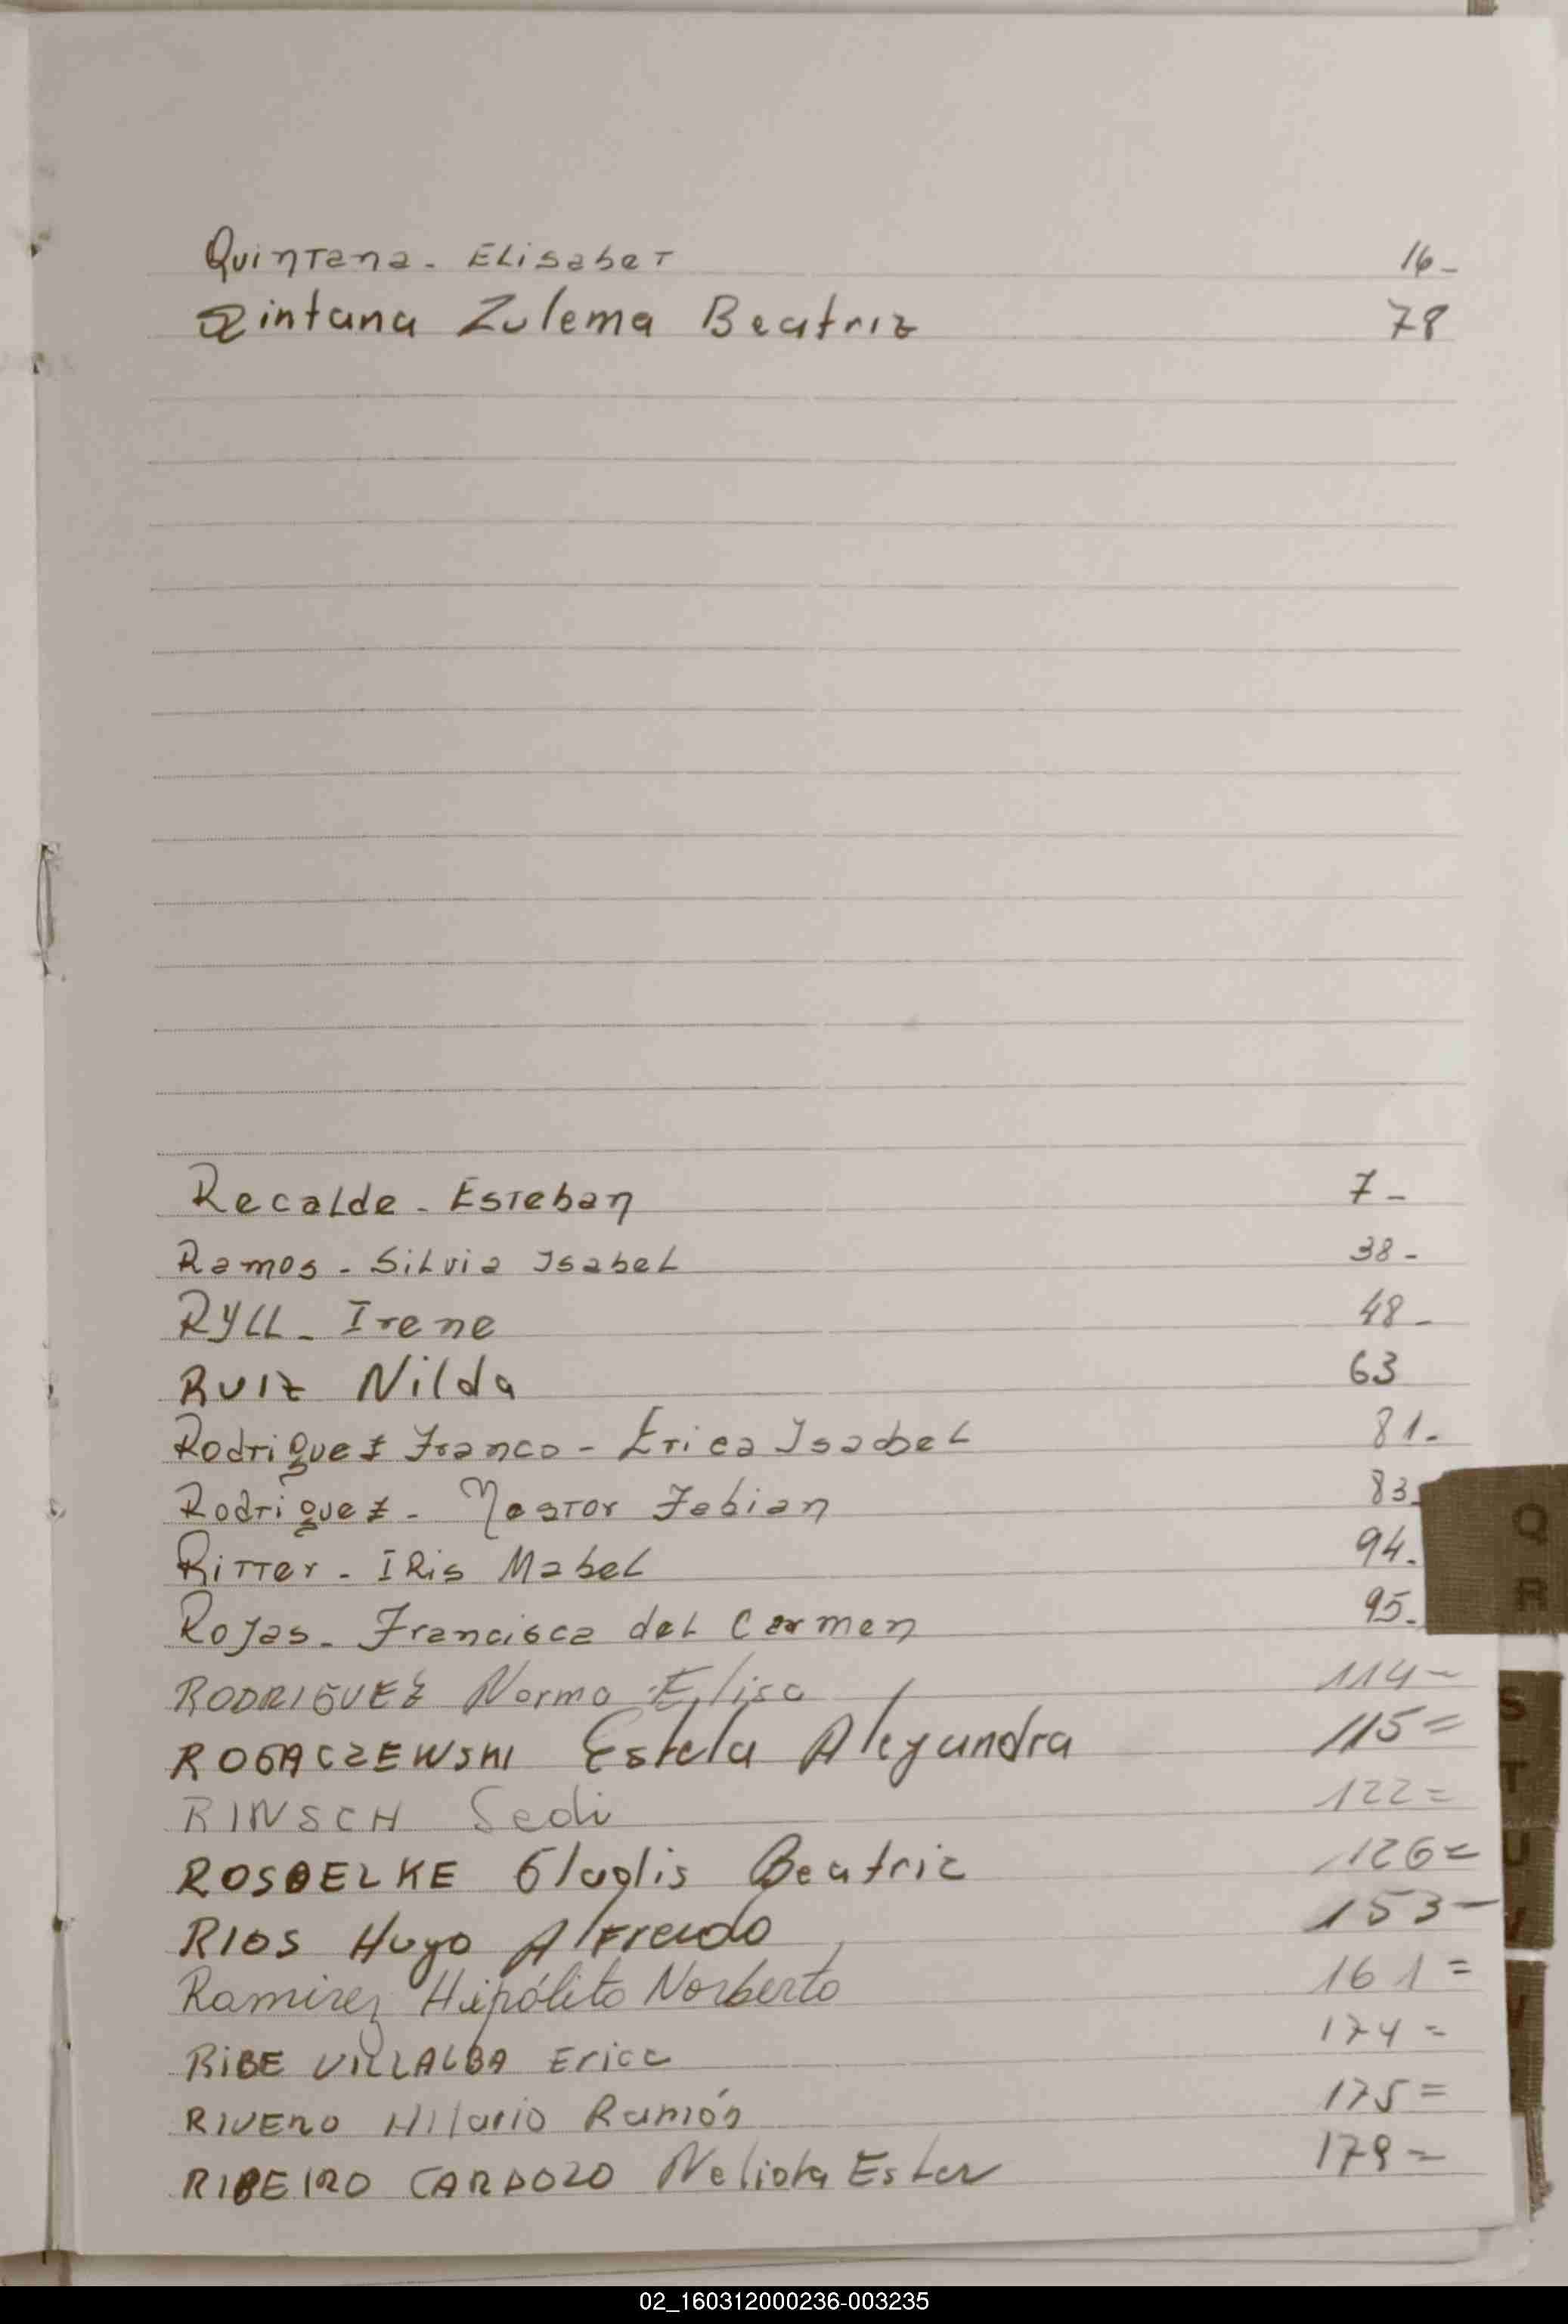 Quintana - Elisabet 16-
Qintana Zulema Beatriz 78
Recalde - Esteban 7-
Ramos - Silvia Isabel 38-
RYLL - Irene 48-
RUIZ Nilda 63
Rodriguez Franco - Erica Isabel 81-
Rodriguez - Nestor Fabian 83-
Ritter - IRis Mabel 94-
Rojas - Francisca del Carmen 95-
Q
R
RODRIGUEZ Norma Elisa 114-
ROGACZEWSKI Estela Alejandra 115=
RINSCH Sedi 122=
ROSBELKE Gladis Beatriz 126=
RIOS Hugo Alfredo 153-
Ramirez Hipólito Norberto 161=
RIBE VILLALBA Erica 174=
RIVERO Hilario Ramón 175=
RIBEIRO CARDOZO Nelida Ester 179=
S
T
U
V
02_160312000236-003235